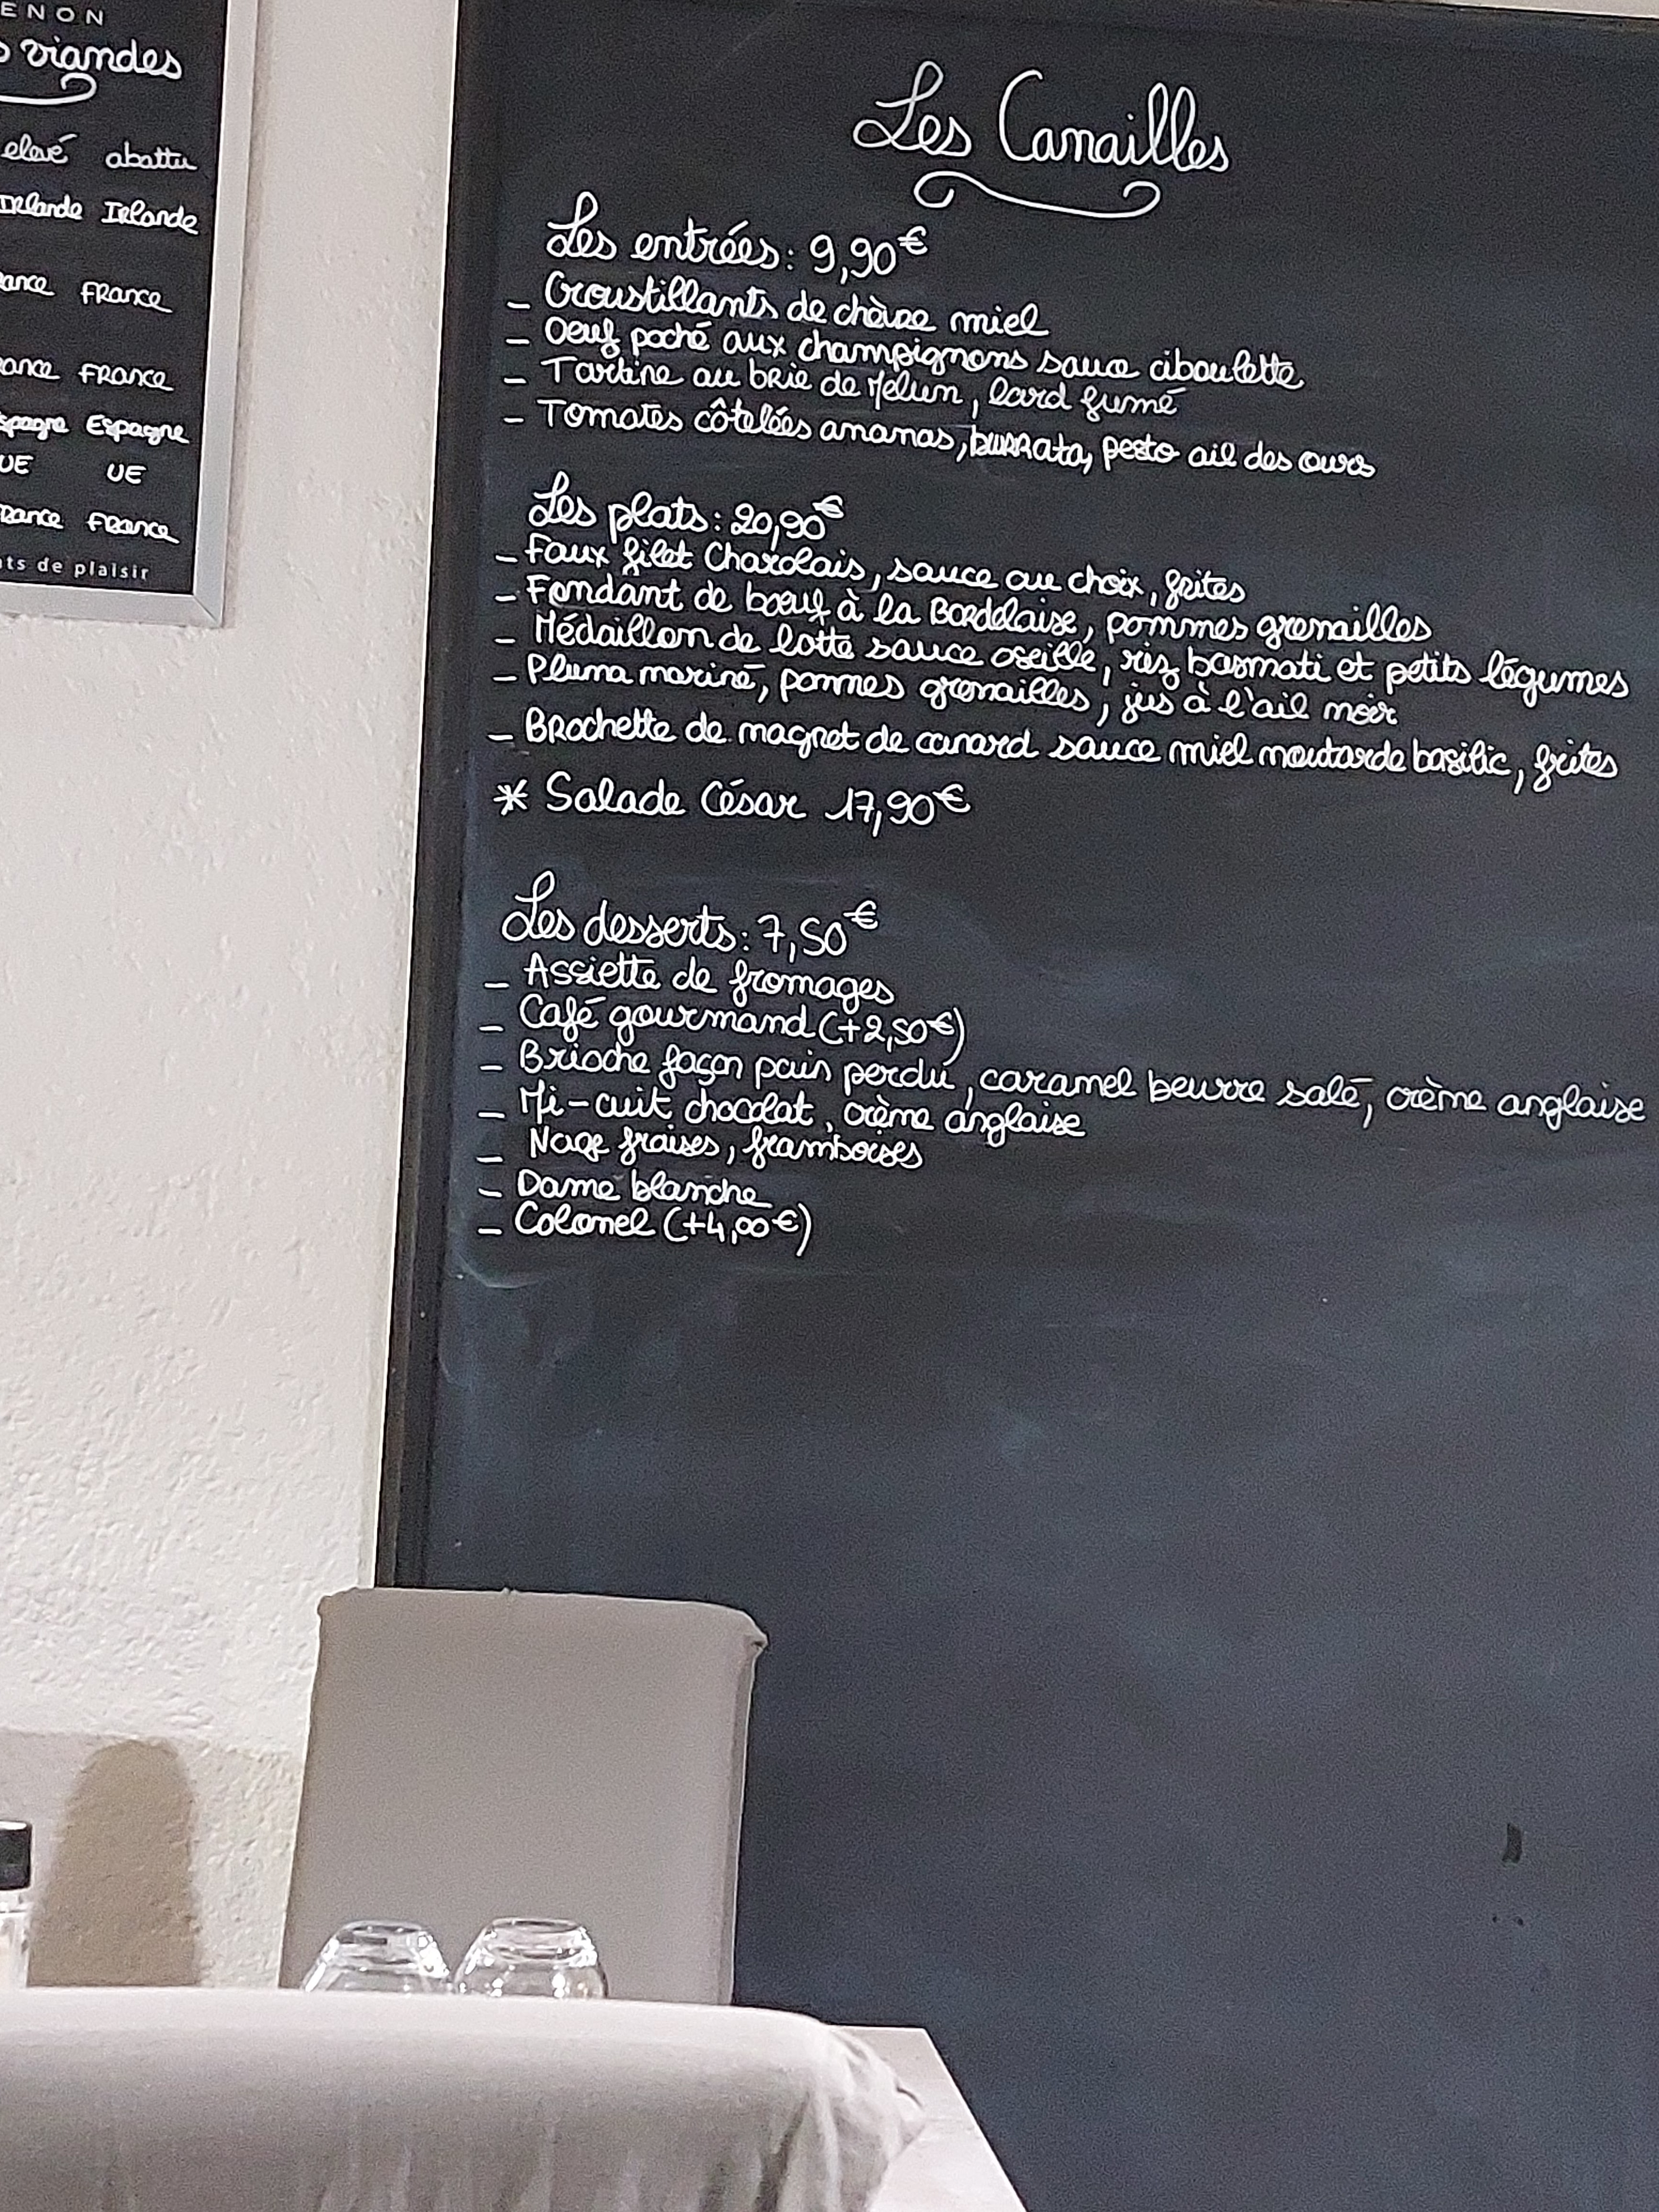 ENON
viandes
elevé abattu
Irlande Irlande
France
France
Espagne
UE UE
France
de plaisir
Les Canailles
Les entrées : 9,90€
_ Croustillants de chèvre miel
_ Oeuf poché aux champignons sauce ciboulette
_ Tartine au brie de Melun, lard fumé
_ Tomates côtelées ananas, burrata, pesto ail des ours
Les plats : 20,90€
_ Faux filet Charolais, sauce au choix, frites
_ Fondant de bœuf à la Bordelaise, pommes grenailles
_ Médaillon de lotte sauce oseille, riz basmati et petits légumes
_ Pluma mariné, pommes grenailles, jus à l'ail noir
_ Brochette de magret de canard sauce miel moutarde basilic, frites
* Salade César 17,90€
Les desserts : 7,50€
_ Assiette de fromages
_ Café gourmand (+2,50€)
_ Brioche façon pain perdu, caramel beurre salé, crème anglaise
_ Mi-cuit chocolat, crème anglaise
_ Nage fraises, framboises
_ Dame blanche
_ Colonel (+4,00€)